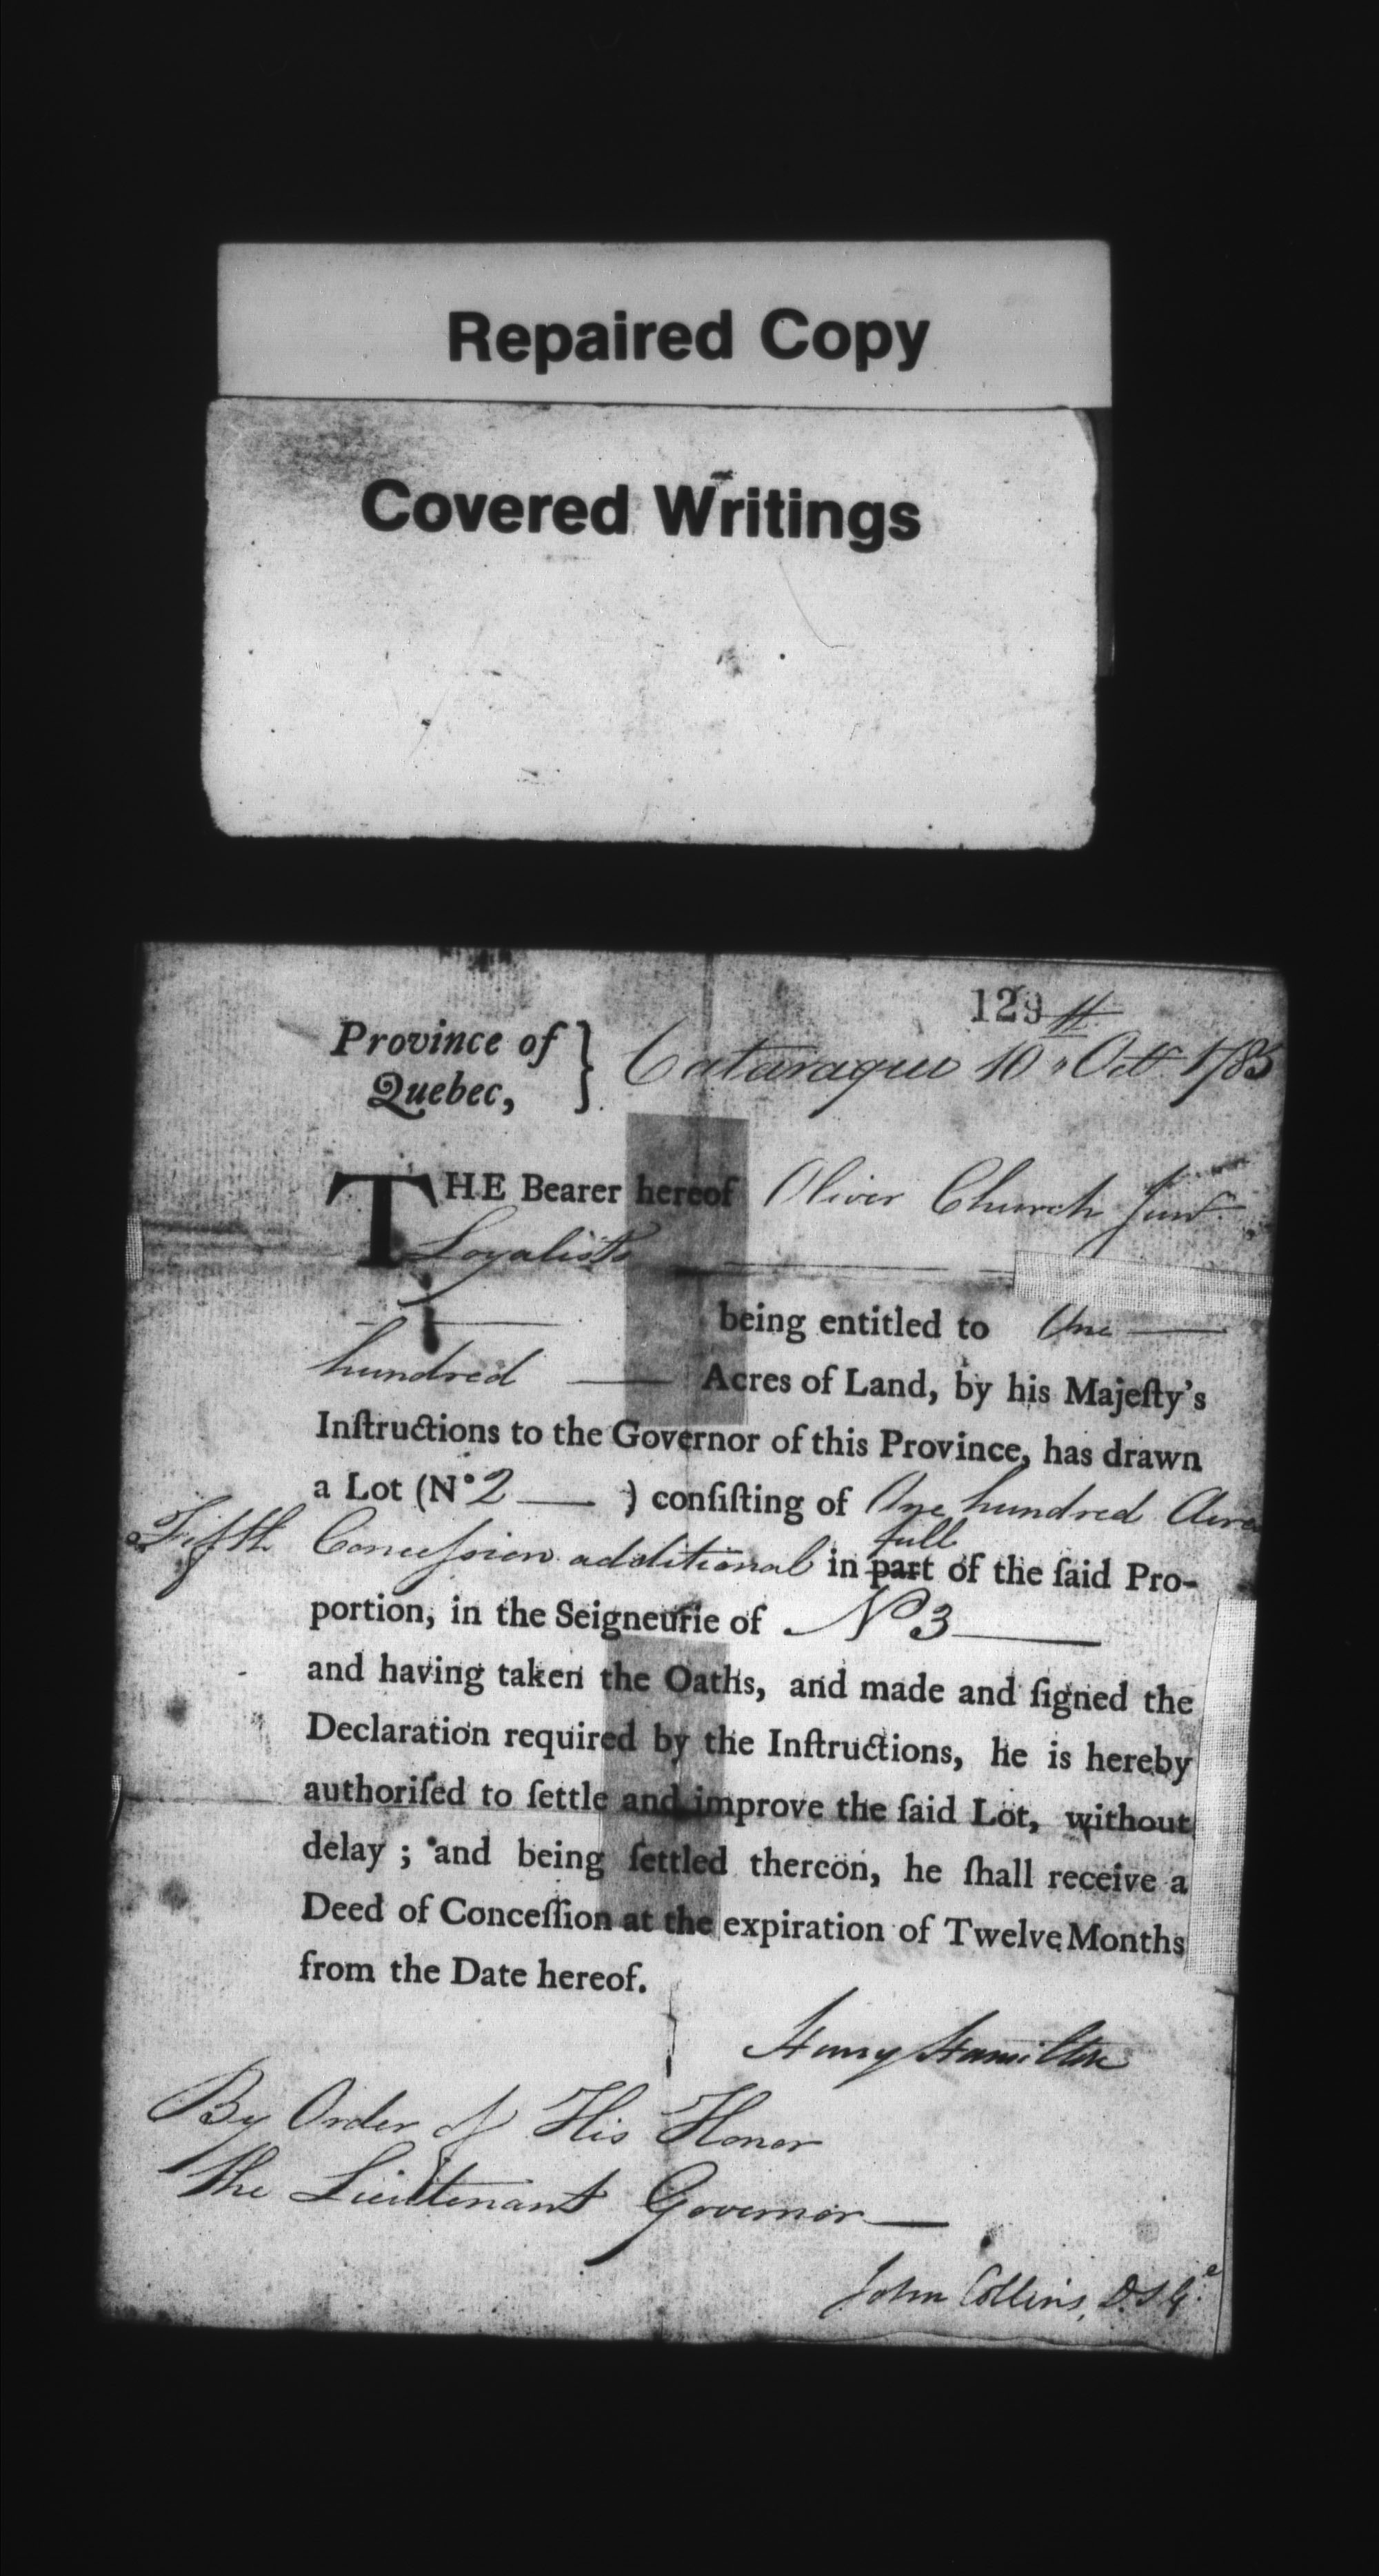 Repaired Copy
Covered Writings
129
Province of } Cataraqui 10th Octr 1785
Quebec,
THE Bearer hereof Oliver Church Junr
Loyalist
being entitled to One
hundred Acres of Land, by his Majeſty's
Inſtructions to the Governor of this Province, has drawn
a Lot (No 2 ) conſiſting of One hundred Acres
Fifth Conceſsion additional in part full of the ſaid Pro-
portion, in the Seigneurie of No 3
and having taken the Oaths, and made and ſigned the
Declaration required by the Inſtructions, he is hereby
authoriſed to ſettle and improve the ſaid Lot, without
delay ; and being ſettled thereon, he ſhall receive a
Deed of Conceſſion at the expiration of Twelve Months
from the Date hereof.
Henry Hamilton
By Order of His Honor
the Lieutenant Governor
John Collins, D.S.Ge